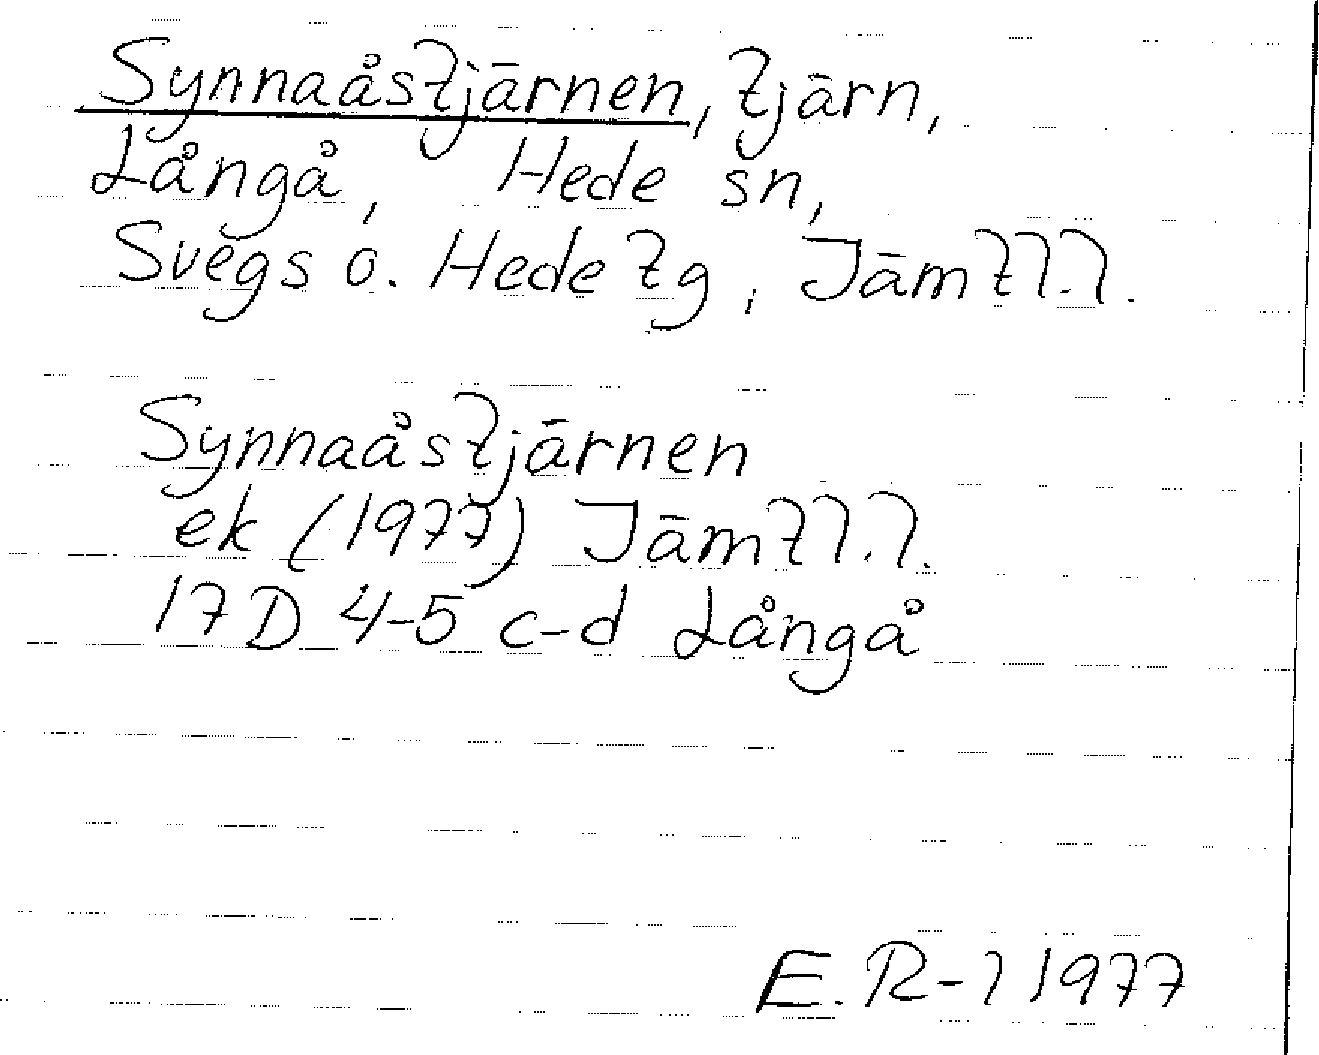 Synnaåstjärnen, tjärn,
Långå, Hede sn,
Svegs o. Hede tg, Jämtl.l.
Synnaåstjärnen
ek (1977) Jämtl.l.
17D 4-5 c-d Långå
E. R-l 1977